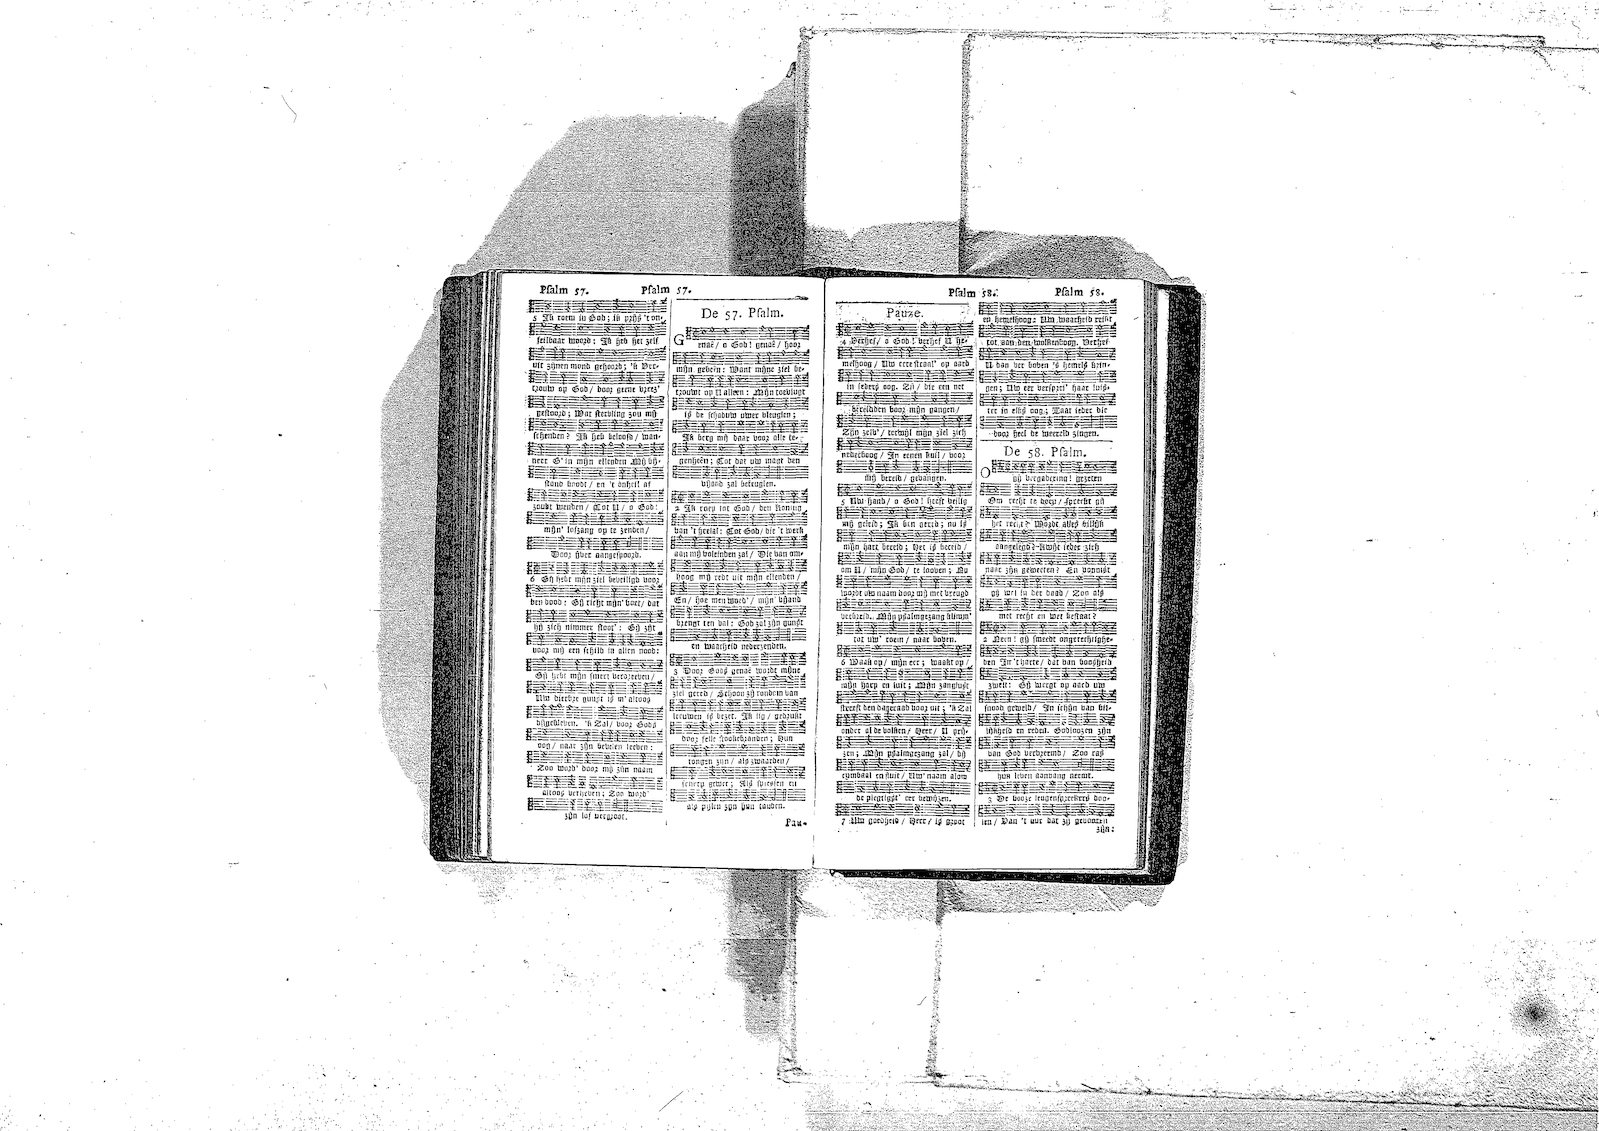 Psalm 57. Psalm 57.
5 Ik roem in God; ik prijs 't on-
feilbaar woord: Ik heb het zelf
uit zijnen mond gehoord; 'k Ver-
trouw op God/ door geene vrees'
gestoord; Wat sterveling zou mij
schenden? Ik heb beloofd/ wan-
neer G' in mijn ellenden Mij bij-
stand boodt/ en 't onheil af
zoudt wenden/ Tot U/ o God!
mijn' lofzang op te zenden/
Door ijver aangespoord.
6 Gij hebt mijn ziel beveiligd voor
den dood: Gij richt mijn' voet/ dat
hij zich nimmer stoot': Gij zijt
voor mij een schild in allen nood:
Gij hebt mijn smert verdreeven/
Uw dierbre gunst is m' altoos
bijgebleven. 'k Zal/ voor Gods
oog/ naar zijn bevelen leeven:
Zoo word' door mij zijn naam
altoos verheven; Zoo word'
zijn lof vergroot.
De 57. Psalm.
Genaê/ o God! genaê/ hoor
mijn gebeên: Want mijne ziel be-
trouwt op U alleen: Mijn toevlugt
is de schaduw uwer vleuglen;
Ik berg mij daar voor alle te-
genheên; Tot dat uw magt den
vijand zal beteuglen.
2 Ik roep tot God/ den Koning
van 't heelal: Tot God/ die 't werk
aan mij voleinden zal/ Die van om-
hoog mij redt uit mijn ellenden/
En/ hoe men woed'/ mijn' vijand
brengt ten val: God zal zijn gunst
en waarheid nederzenden.
3 Door Gods genaê wordt mijne
ziel gered/ Schoon zij rondom van
leeuwen is bezet. Ik lig/ gedrukt
door felle stookebranden; Hun
tongen zijn/ als zwaarden/
scherp gewet; Als spiessen en
als pijlen zijn hun tanden.
Pau-
Psalm 58. Psalm 58.
Pauze.
4 Verhef/ o God! verhef U he-
melhoog/ Uw eere straal' op aard
in ieders oog. Zij/ die een net
bereidden voor mijn gangen/
Zijn zelv'/ terwijl mijn ziel zich
nederboog/ In eenen kuil/ voor
mij bereid/ gevangen.
5 Uw hand/ o God! heeft veilig
mij geleid; Ik ben gered; nu is
mijn hart bereid; Het is bereid/
om U/ mijn God/ te looven; Nu
wordt uw naam door mij met vreugd
verbreid. Mijn psalmgezang klimm'
tot uw' roem/ naar boven.
6 Waak op/ mijn eer; waakt op/
mijn harp en luit; Mijn zanglust
streeft den dageraad voor uit; 'k Zal
onder al de volken/ Heer/ U prij-
zen; Mijn psalmgezang zal/ bij
cymbaal en fluit/ Uw' naam alom
de plegtigst' eer bewijzen.
7 Uw goedheid/ Heer/ is groot
en hemelhoog: Uw waarheid reikt
tot aan den wolkenboog. Verhef
U dan ver boven 's hemels krin-
gen; Uw eer versprei' haar luis-
ter in elks oog; Laat ieder die
door heel de weereld zingen.
De 58. Psalm.
O gij vergadering! gezeten
Om recht te doen/ spreekt gij
het recht? Wordt alles billijk
aangelegd? Kwijt ieder zich
naar zijn geweeten? En vonnist
gij wel in der daad/ Zoo als
met recht en wet bestaat?
2 Neen! gij smeedt ongerechtighe-
den In 't harte/ dat van boosheid
zwelt: Gij weegt op aard uw
snood geweld/ In schijn van bil-
lijkheid en reden. Godloozen zijn
van God vervreemd/ Zoo ras
hun leven aanvang neemt.
3 De booze leugenspreekers doo-
len/ Van 't uur dat zij gebooren
zijn: